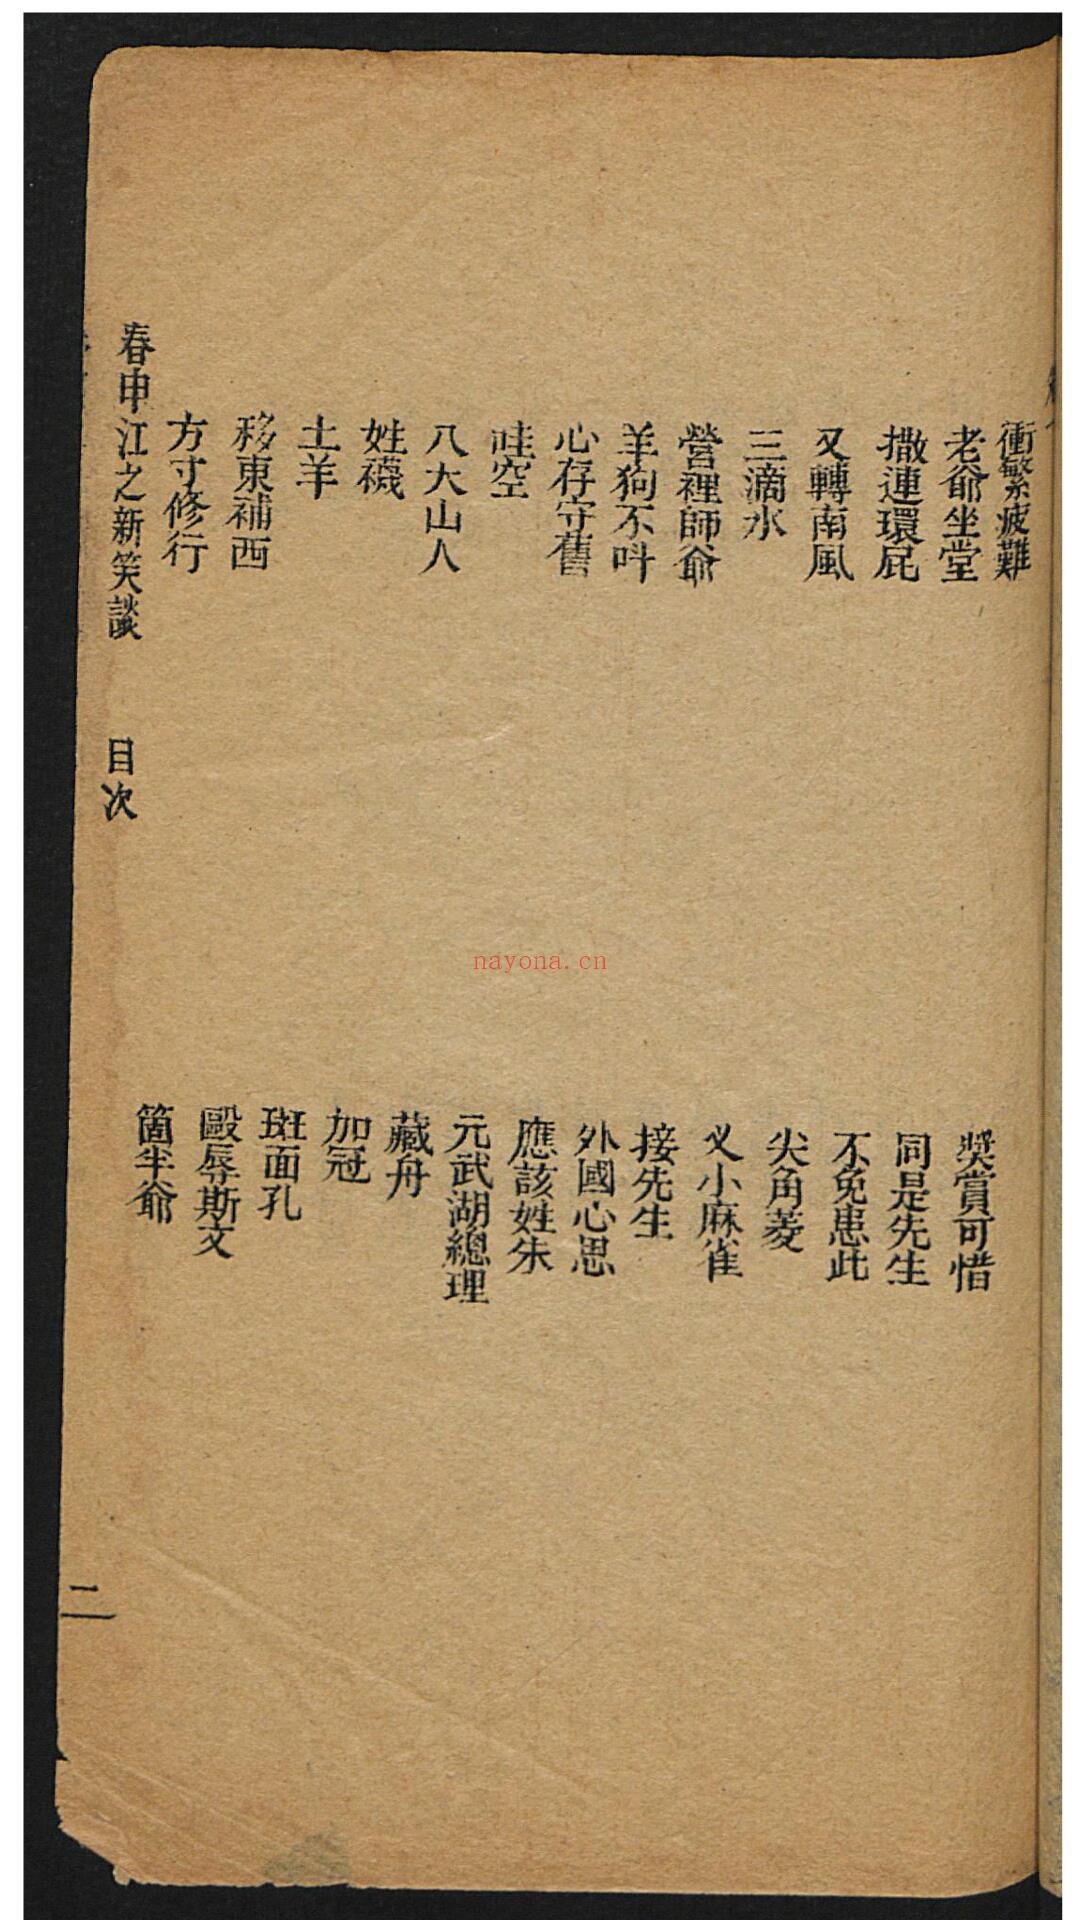 衝繁疲難
老爺坐堂
撒連環屁
又轉南風
三滴水
營裡師爺
羊狗不呌
心存守舊
哇空
八大山人
姓襪
土羊
移東補西
方寸修行
獎賞可惜
同是先生
不免患此
尖角菱
乂小麻雀
接先生
外國心思
應該姓朱
元武湖總理
藏舟
加冠
斑面孔
毆辱斯文
箇半爺
春申江之新笑談 目次
二
nayona.cn